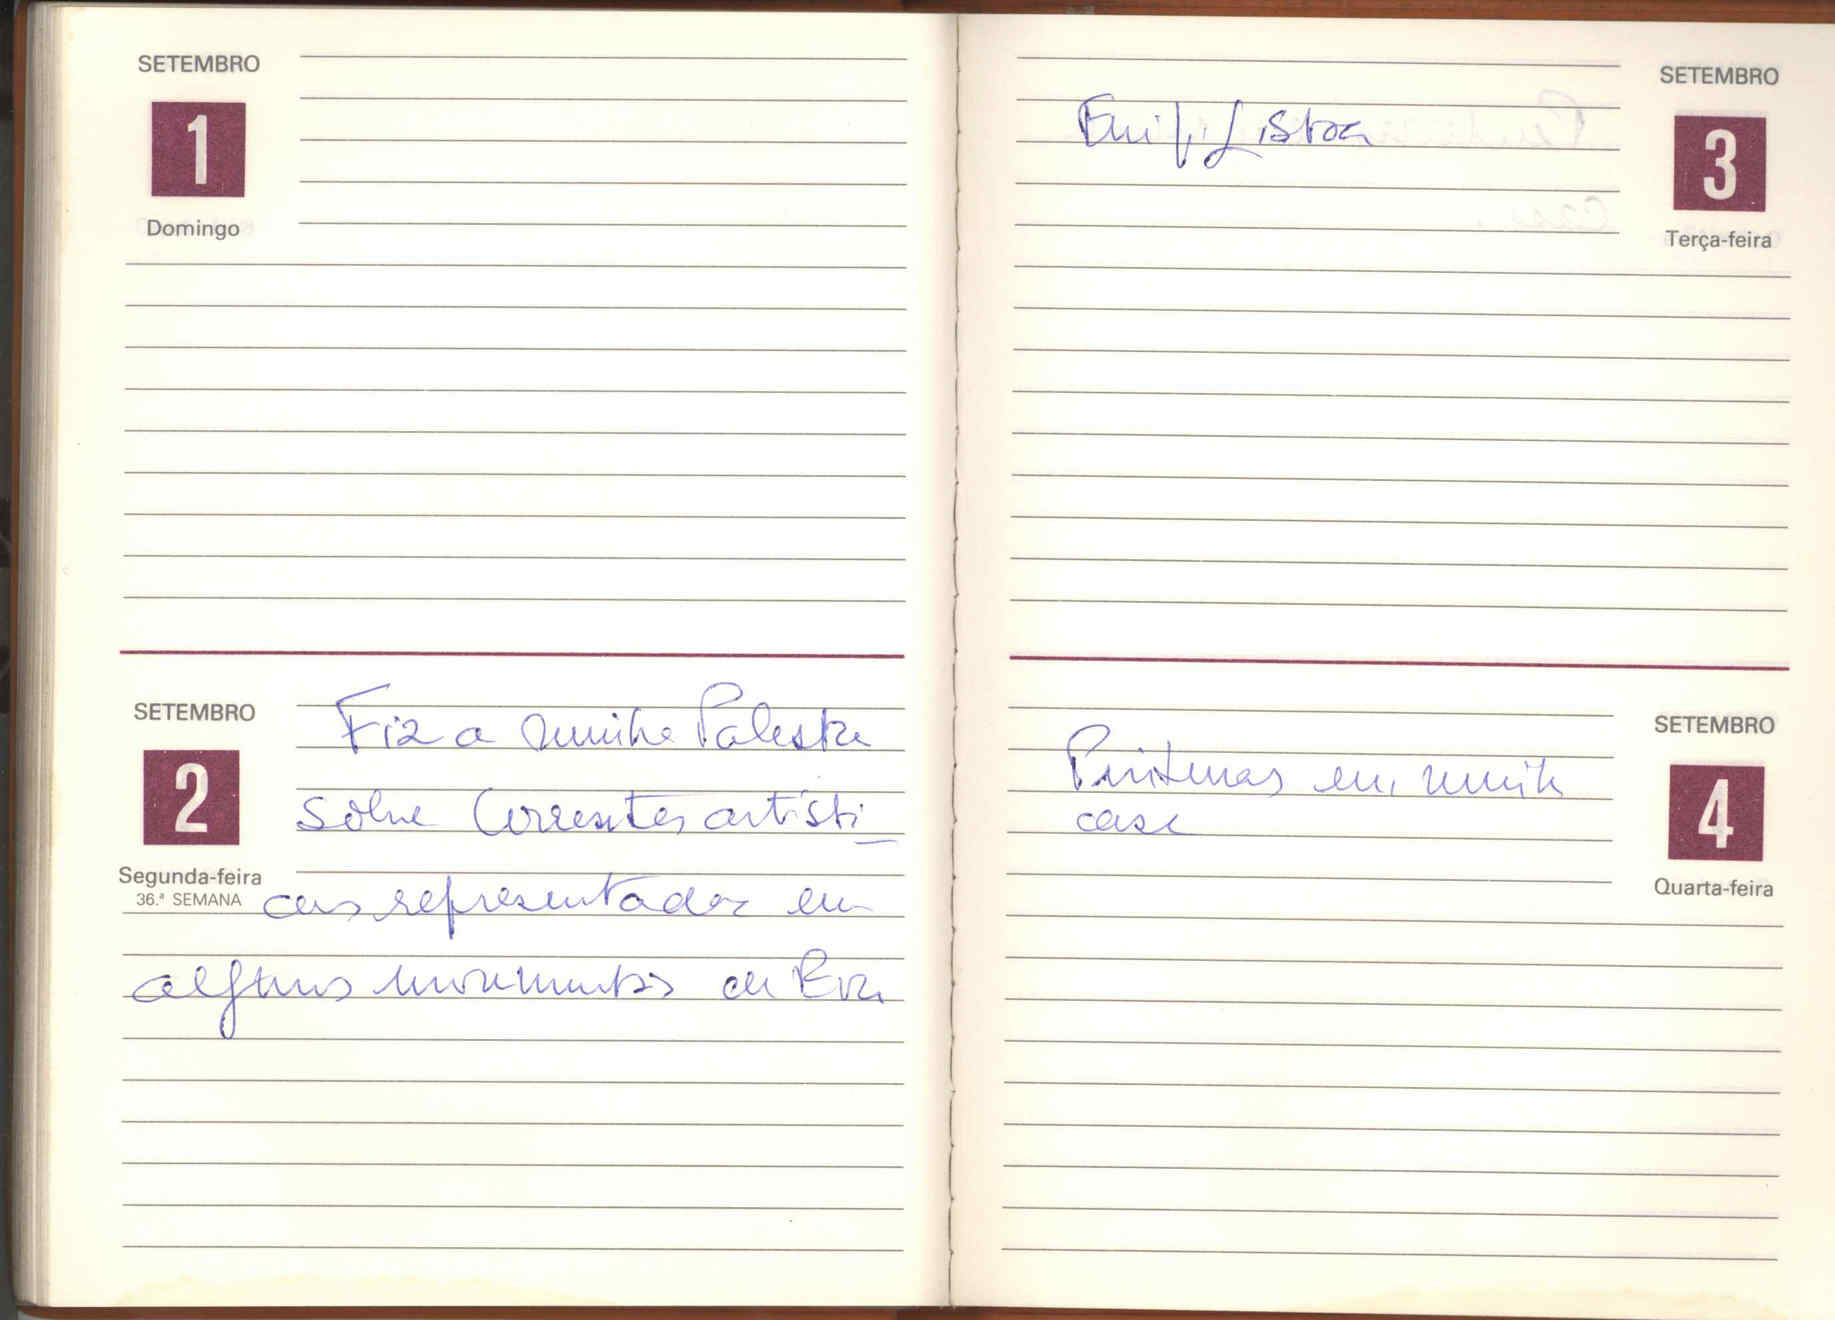 SETEMBRO
1
Domingo
SETEMBRO
2
Segunda-feira
36.ª SEMANA
Fiz a minha Palestra
sobre Correntes artísti-
cas representadas em
alguns monumentos de
SETEMBRO
3
Terça-feira
Fui p. Lisboa
SETEMBRO
4
Quarta-feira
Pinturas em minha
casa